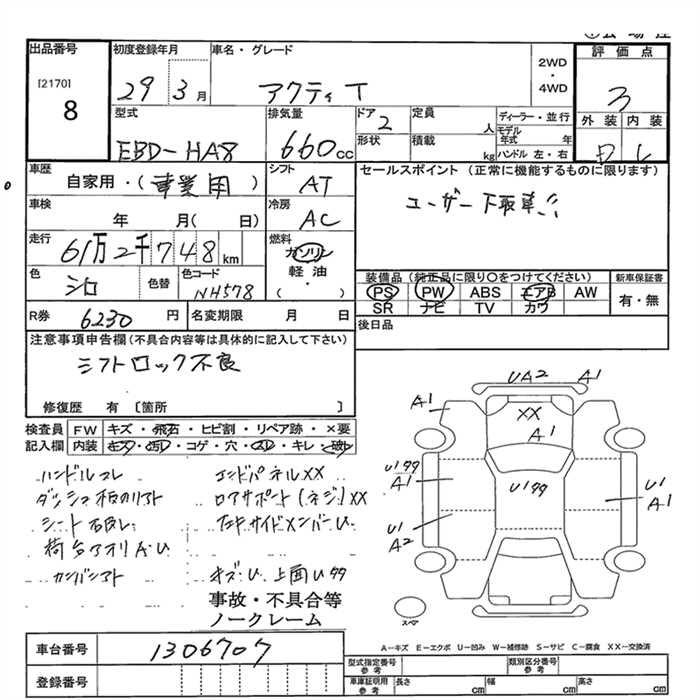 出品番号
[2170]
8
初度登録年月
29 3月
車名・グレード
アクティ T
2WD
・
4WD
評価点
3
外装 内装
D
型式
EBD-HA8
排気量
660cc
ドア 2
形状
定員
人
積載
kg
ディーラー・並行
モデル
年式 年
ハンドル 左・右
車歴
自家用・(事業用)
シフト
AT
セールスポイント(正常に機能するものに限ります)
ユーザー下取車!!
車検
年 月( 日)
冷房
AC
走行
61万2千748km
燃料
ガソリン
軽油
( ・ )
色
シロ
色替
色コード
NH578
装備品(純正品に限り〇をつけてください)
PS PW ABS エアB AW
SR ナビ TV カワ
新車保証書
有・無
R券 6230円
名変期限 月 日
後日品
注意事項申告欄(不具合内容等は具体的に記入して下さい)
シフトロック不良
修復歴 有〔箇所 〕
検査員 FW キズ・飛石・ヒビ割・リペア跡・×要
記入欄 内装 キズ・汚れ・コゲ・穴・スレ・キレ・破レ
ハンドルスレ
エンドパネルXX
ロアサポート(ネジ)XX
荷台アオリA・U
キズ・U 上面U99
事故・不具合等
ノークレーム
UA2
A1
A1
XX
A1
U199
A1
U199
U1
A1
U1
A2
スペア
A-キズ E-エクボ U-凹み W-補修跡 S-サビ C-腐食 XX-交換済
車台番号 1306707
登録番号
型式指定番号
参考
類別区分番号
参考
車庫証明用
参考
長さ cm
幅 cm
高さ cm